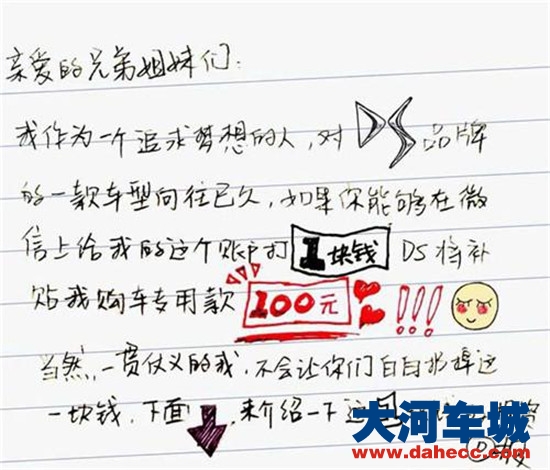 亲爱的兄弟姐妹们：
我作为一个追求梦想的人，对DS品牌
的一款车型向往已久，如果你能够在微
信上给我的这个账户打1块钱 DS将补
贴我购车专用款100元!!!
当然，一贯仗义的我，不会让你们白白光掉这
一块钱，下面，来介绍一下这
大河车城
www.dahecc.com